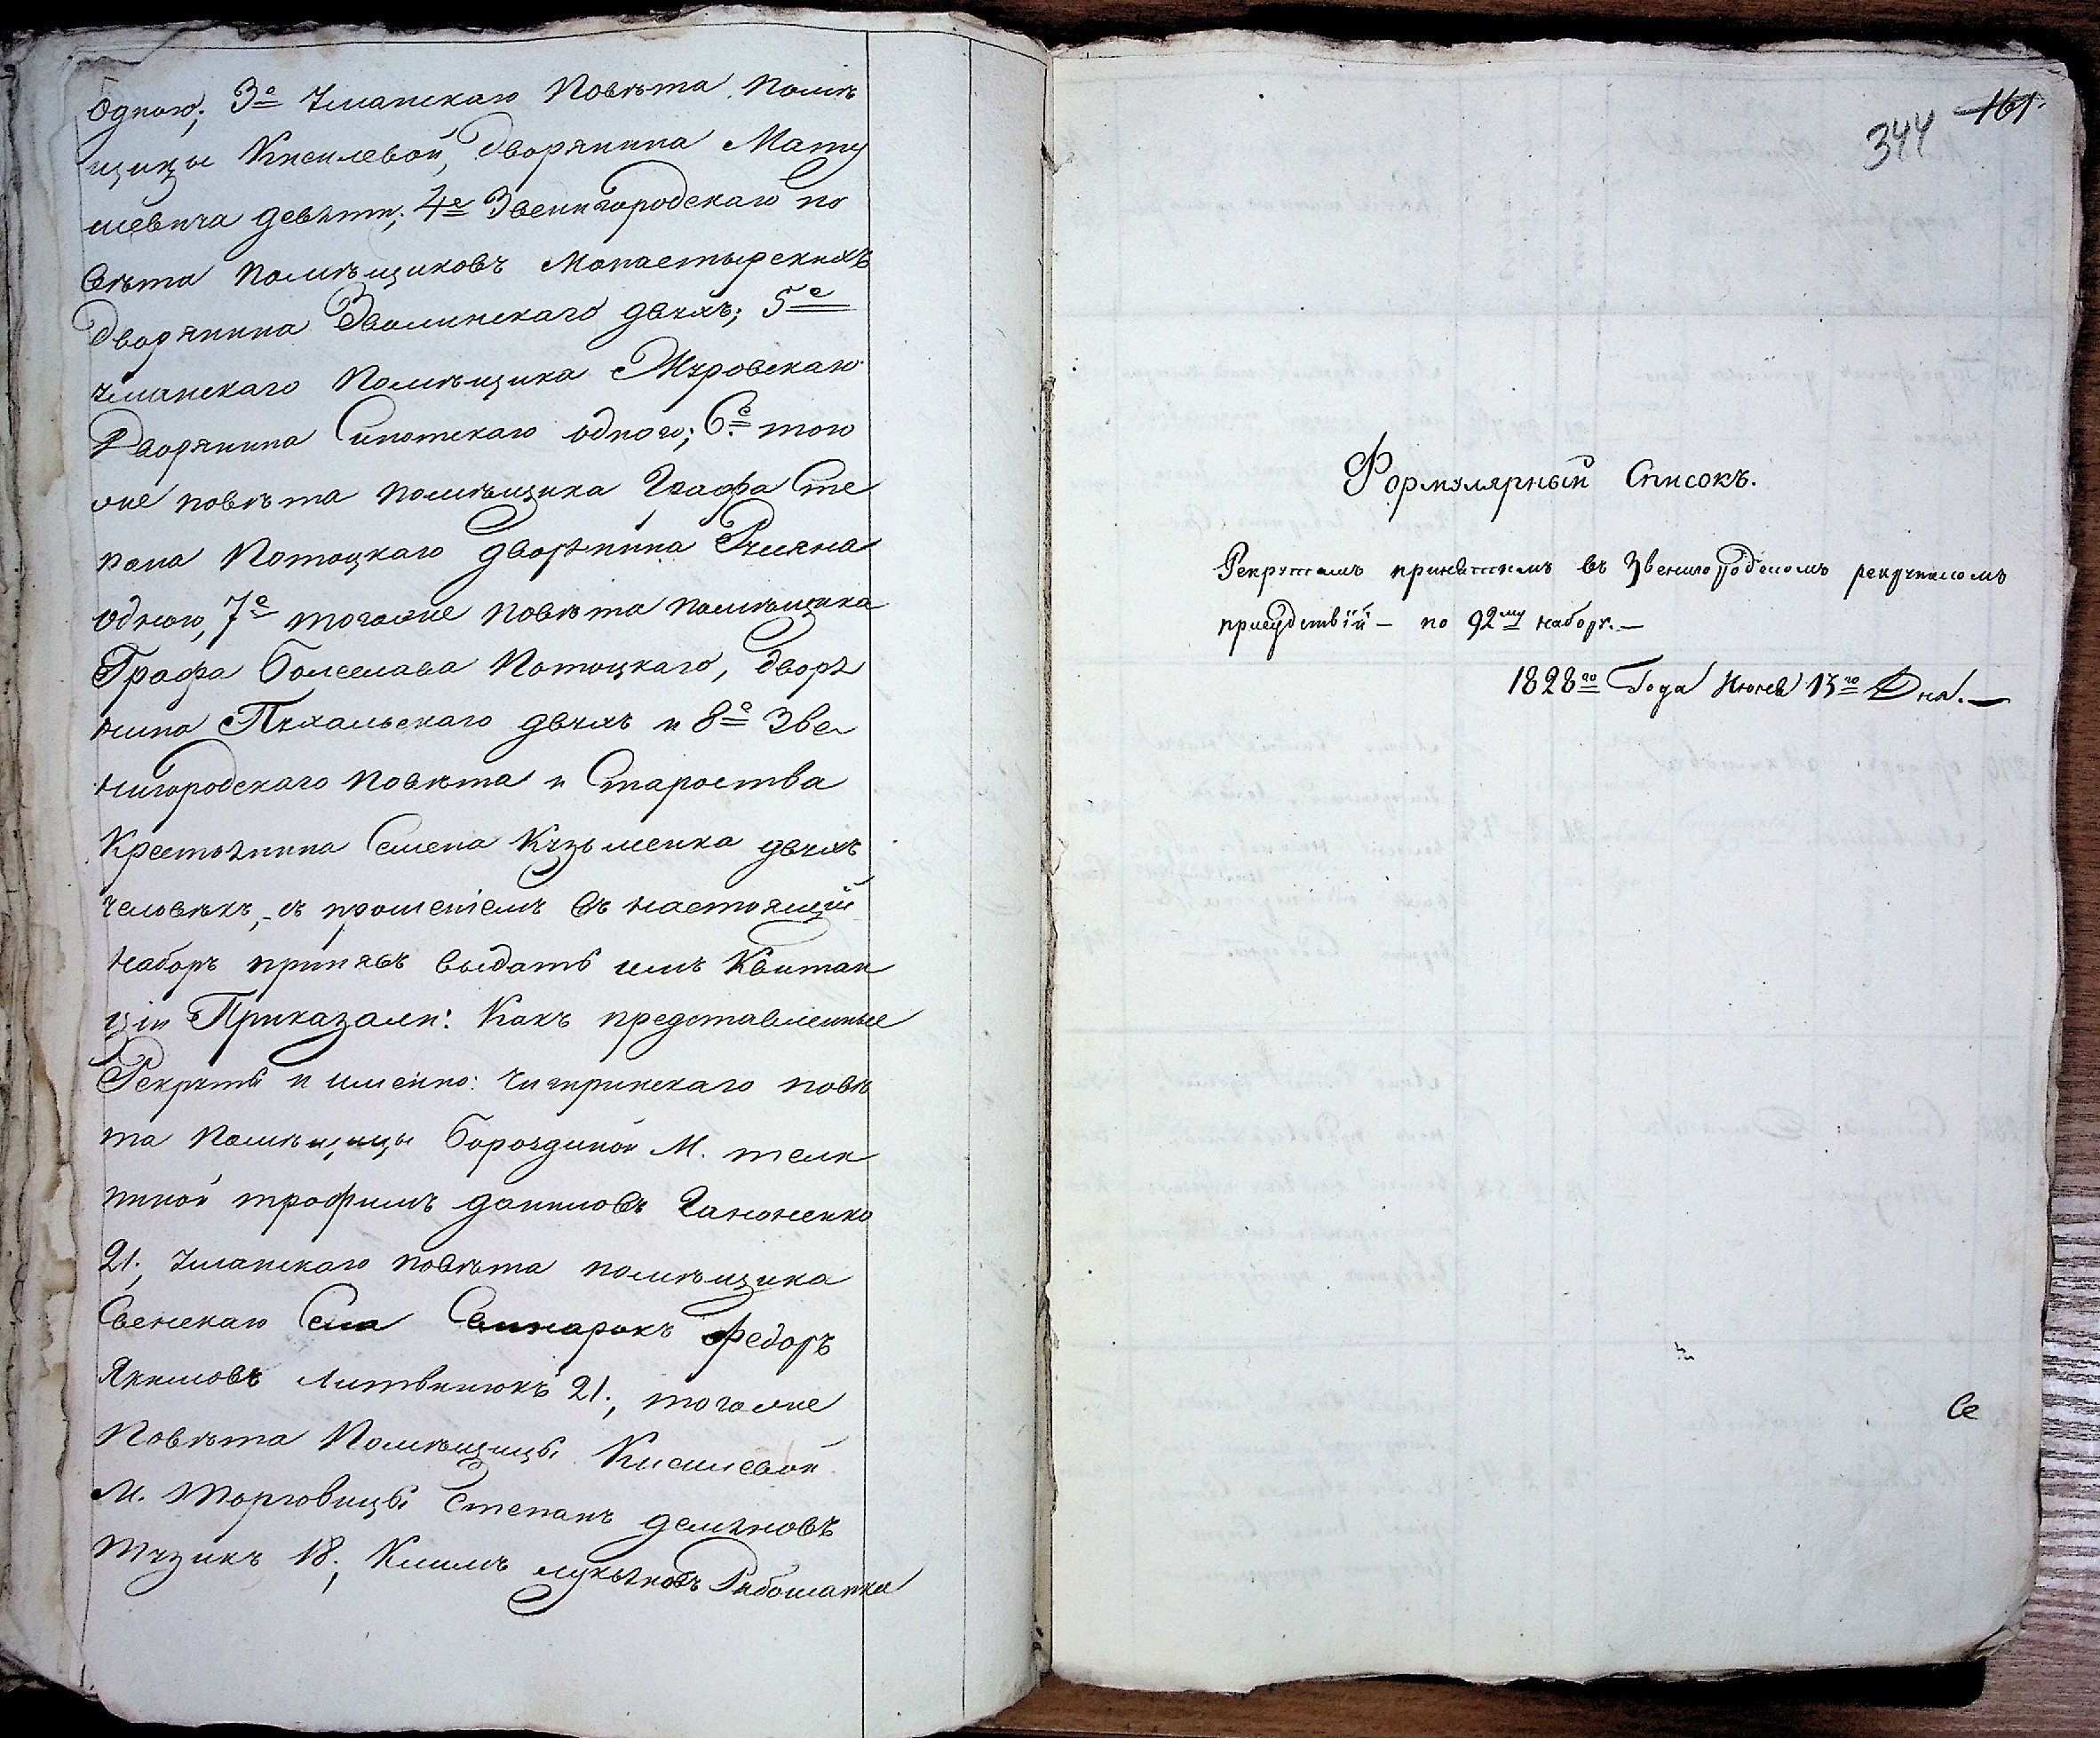 одного; 3е Уманскаго Повѣта помѣ
щицы Киселевой, Дворянина Мату
шевича девяти; 4е Звенигородскаго по
вѣта помѣщиковъ Монастырскихъ
Дворянина Зволинскаго двухъ; 5е
Уманскаго Помѣщика Журовскаго
Дворянина Синотскаго одного; 6е того
же повѣта помѣщика Графа Сте
пана Потоцкаго дворянина
одного, 7е тогоже повѣта помѣщика
Графа Болеслава Потоцкаго, дворя
нина Пухальскаго двухъ и 8е Зве
нигородскаго Повѣта и Староства
Крестьянина Семена Кузьменка двухъ
человѣкъ, съ прошеніемъ въ настоящій
наборъ принявъ выдать имъ Квитан
ціи Приказали: Какъ представленные
Рекруты и именно: Чигиринскаго повѣ
та Помѣщицы Бороздиной М. телѣ
пиной трофимъ даниловъ
21; Уманскаго повѣта помѣщика
Свенскаго Села Свинарокъ Федоръ
Якимовъ Литвинюкъ 21; тогоже
Повѣта Помѣщицы Киселевой
М. Торговицы Степанъ демяновъ
Тузикъ 18; Климъ лукьяновъ Рябошапка
161.
344
Формулярный Списокъ.
Рекрутамъ принятымъ въ Звенигородскомъ рекрутскомъ
присудствій — по 92му набору. —
1828го Года Июня 15го Дня. —
Се